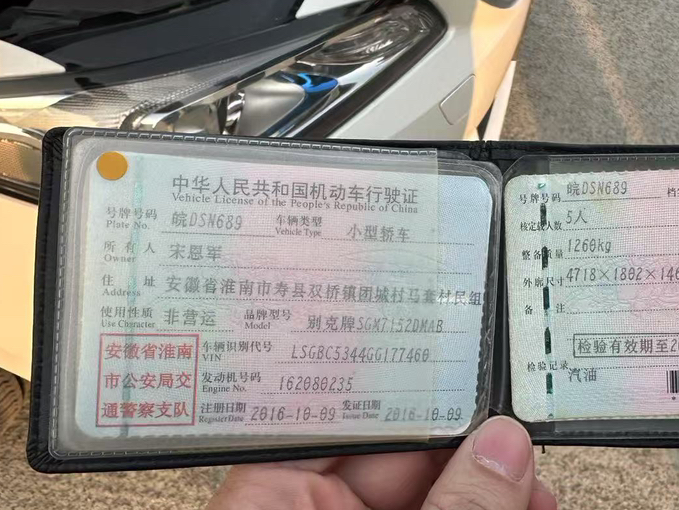 中华人民共和国机动车行驶证
Vehicle License of the People's Republic of China
号牌号码 皖DSN689 车辆类型 小型轿车
Plate No. Vehicle Type
所有人 宋恩军
Owner
住址 安徽省淮南市寿县双桥镇团城村马套村民组
Address
使用性质 非营运 品牌型号 别克牌SGM7152DMAB
Use Character Model
安徽省淮南
市公安局交
通警察支队
车辆识别代号 LSGBC5344GG177460
VIN
发动机号码 162080235
Engine No.
注册日期 2016-10-09 发证日期 2016-10-09
Register Date Issue Date
号牌号码 皖DSN689
核定载人数 5人
整备质量 1260kg
外廓尺寸 4718×1802×146
备注
检验有效期至20
检验记录
汽油